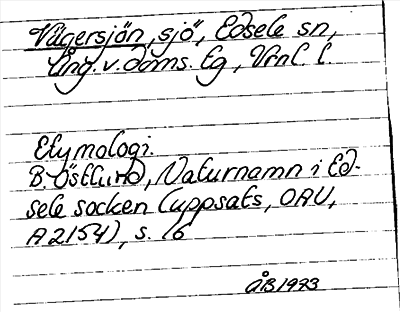 Vågersjön, sjö, Edsele sn,
Ång. v. doms. tg, Vrnl. l.
Etymologi.
B. Östlund, Naturnamn i Ed-
sele socken (uppsats, OAU,
A 2154), s. 16
ÅB 1993